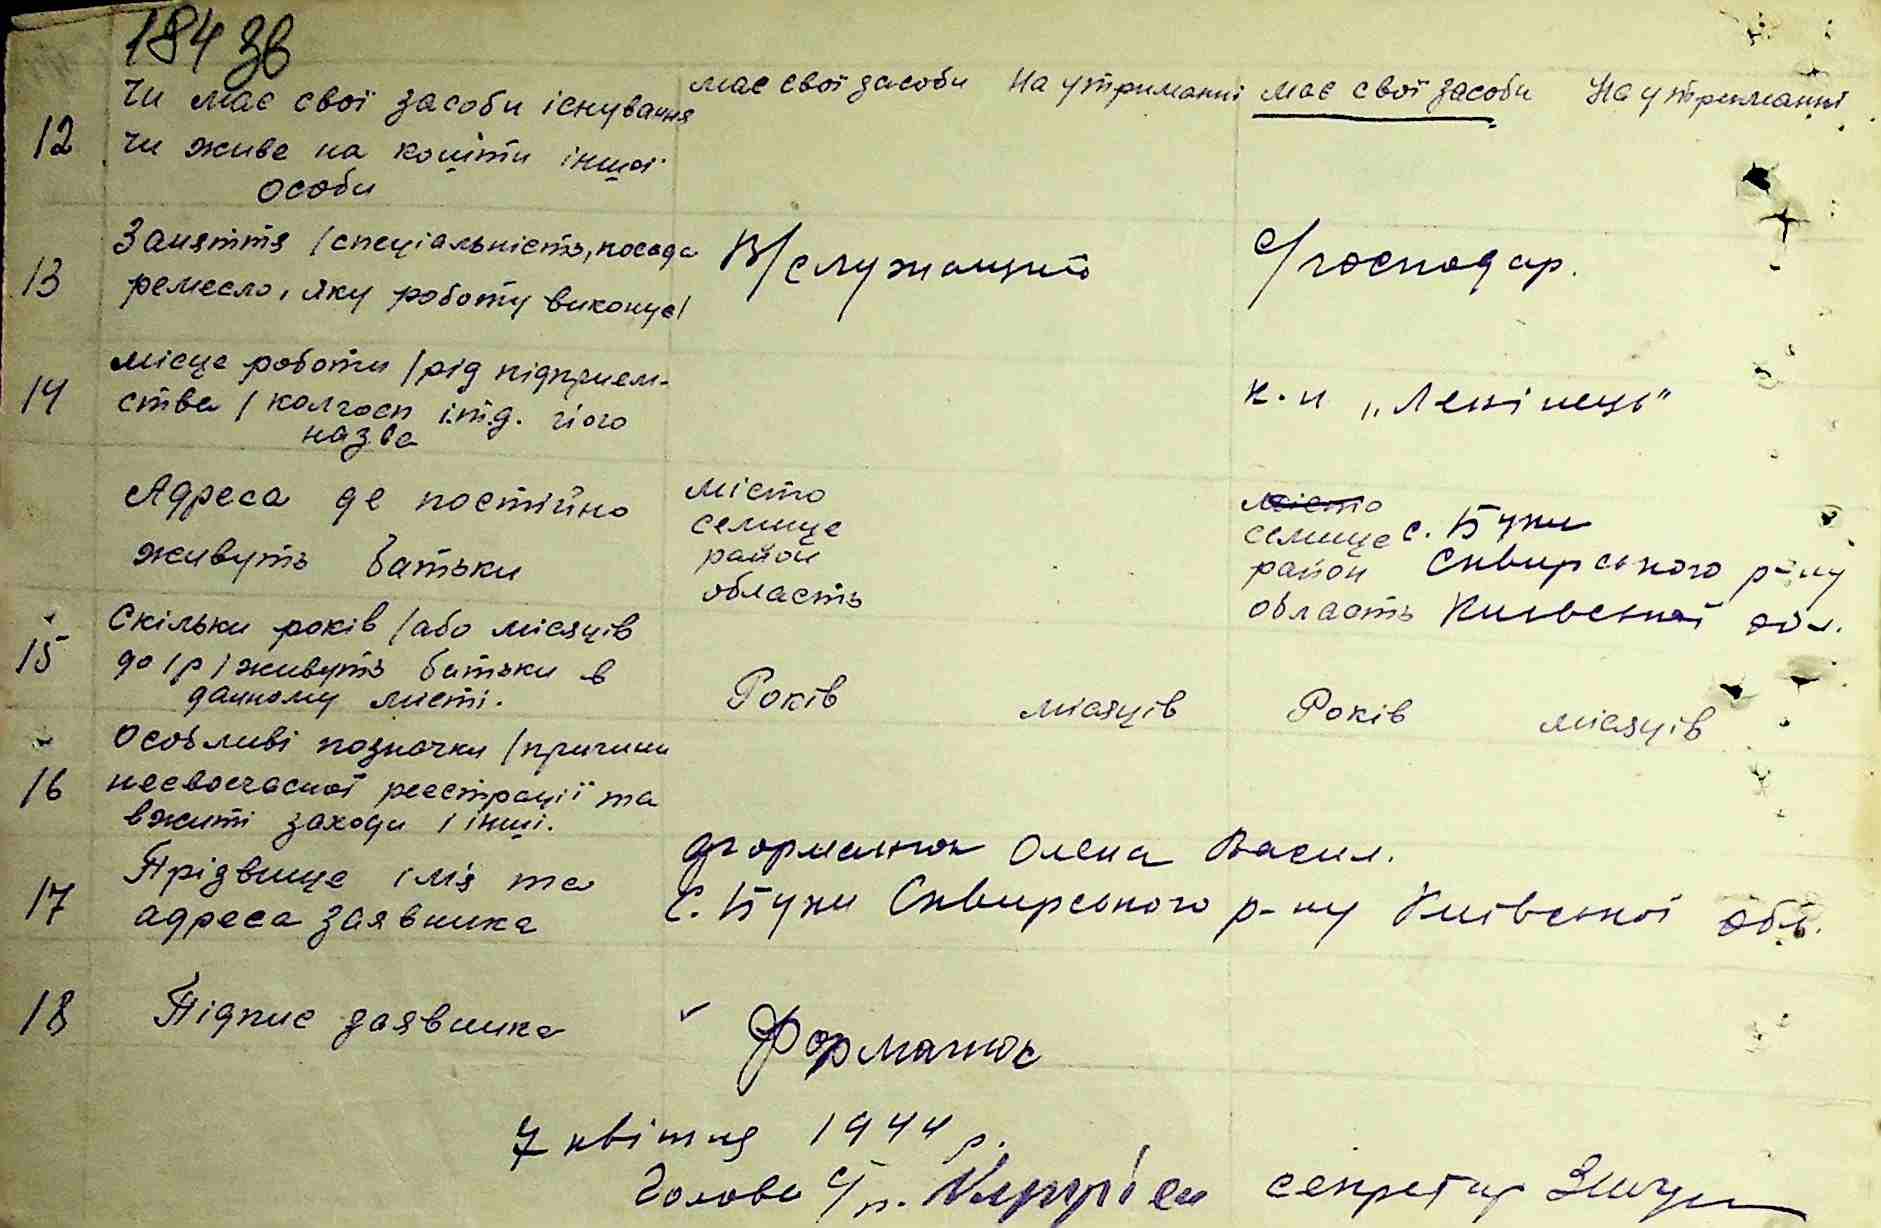 184 зв
12 Чи має свої засоби існування має свої засоби На утриманні має свої засоби На утриманні
чи живе на кошти іншої
особи
13 Заняття /спеціальність, посада В/служащий С/господар.
ремесло, яку роботу виконує/
14 місце роботи /рід підприєм-
ства / колгосп і.т.д. його к.и „Ленінець"
назва
Адреса де постійно місто місто
живуть батьки селище селище с. Буки
район район Сквирського р-ну
область область Київської обл.
15 Скільки років /або місяців
до /р/ живуть батьки в
данному місті. Років місяців Років місяців
16 Особливі позначки /причини
несвоєчасної реєстрації та
вжиті заходи і інші.
17 Прізвище ім'я та Форманюк Олена Васил.
адреса заявника с. Буки Сквирського р-ну Київської обл.
18 Підпис заявника Форманюк
7 квітня 1944 р.
Голова с/р. секретар